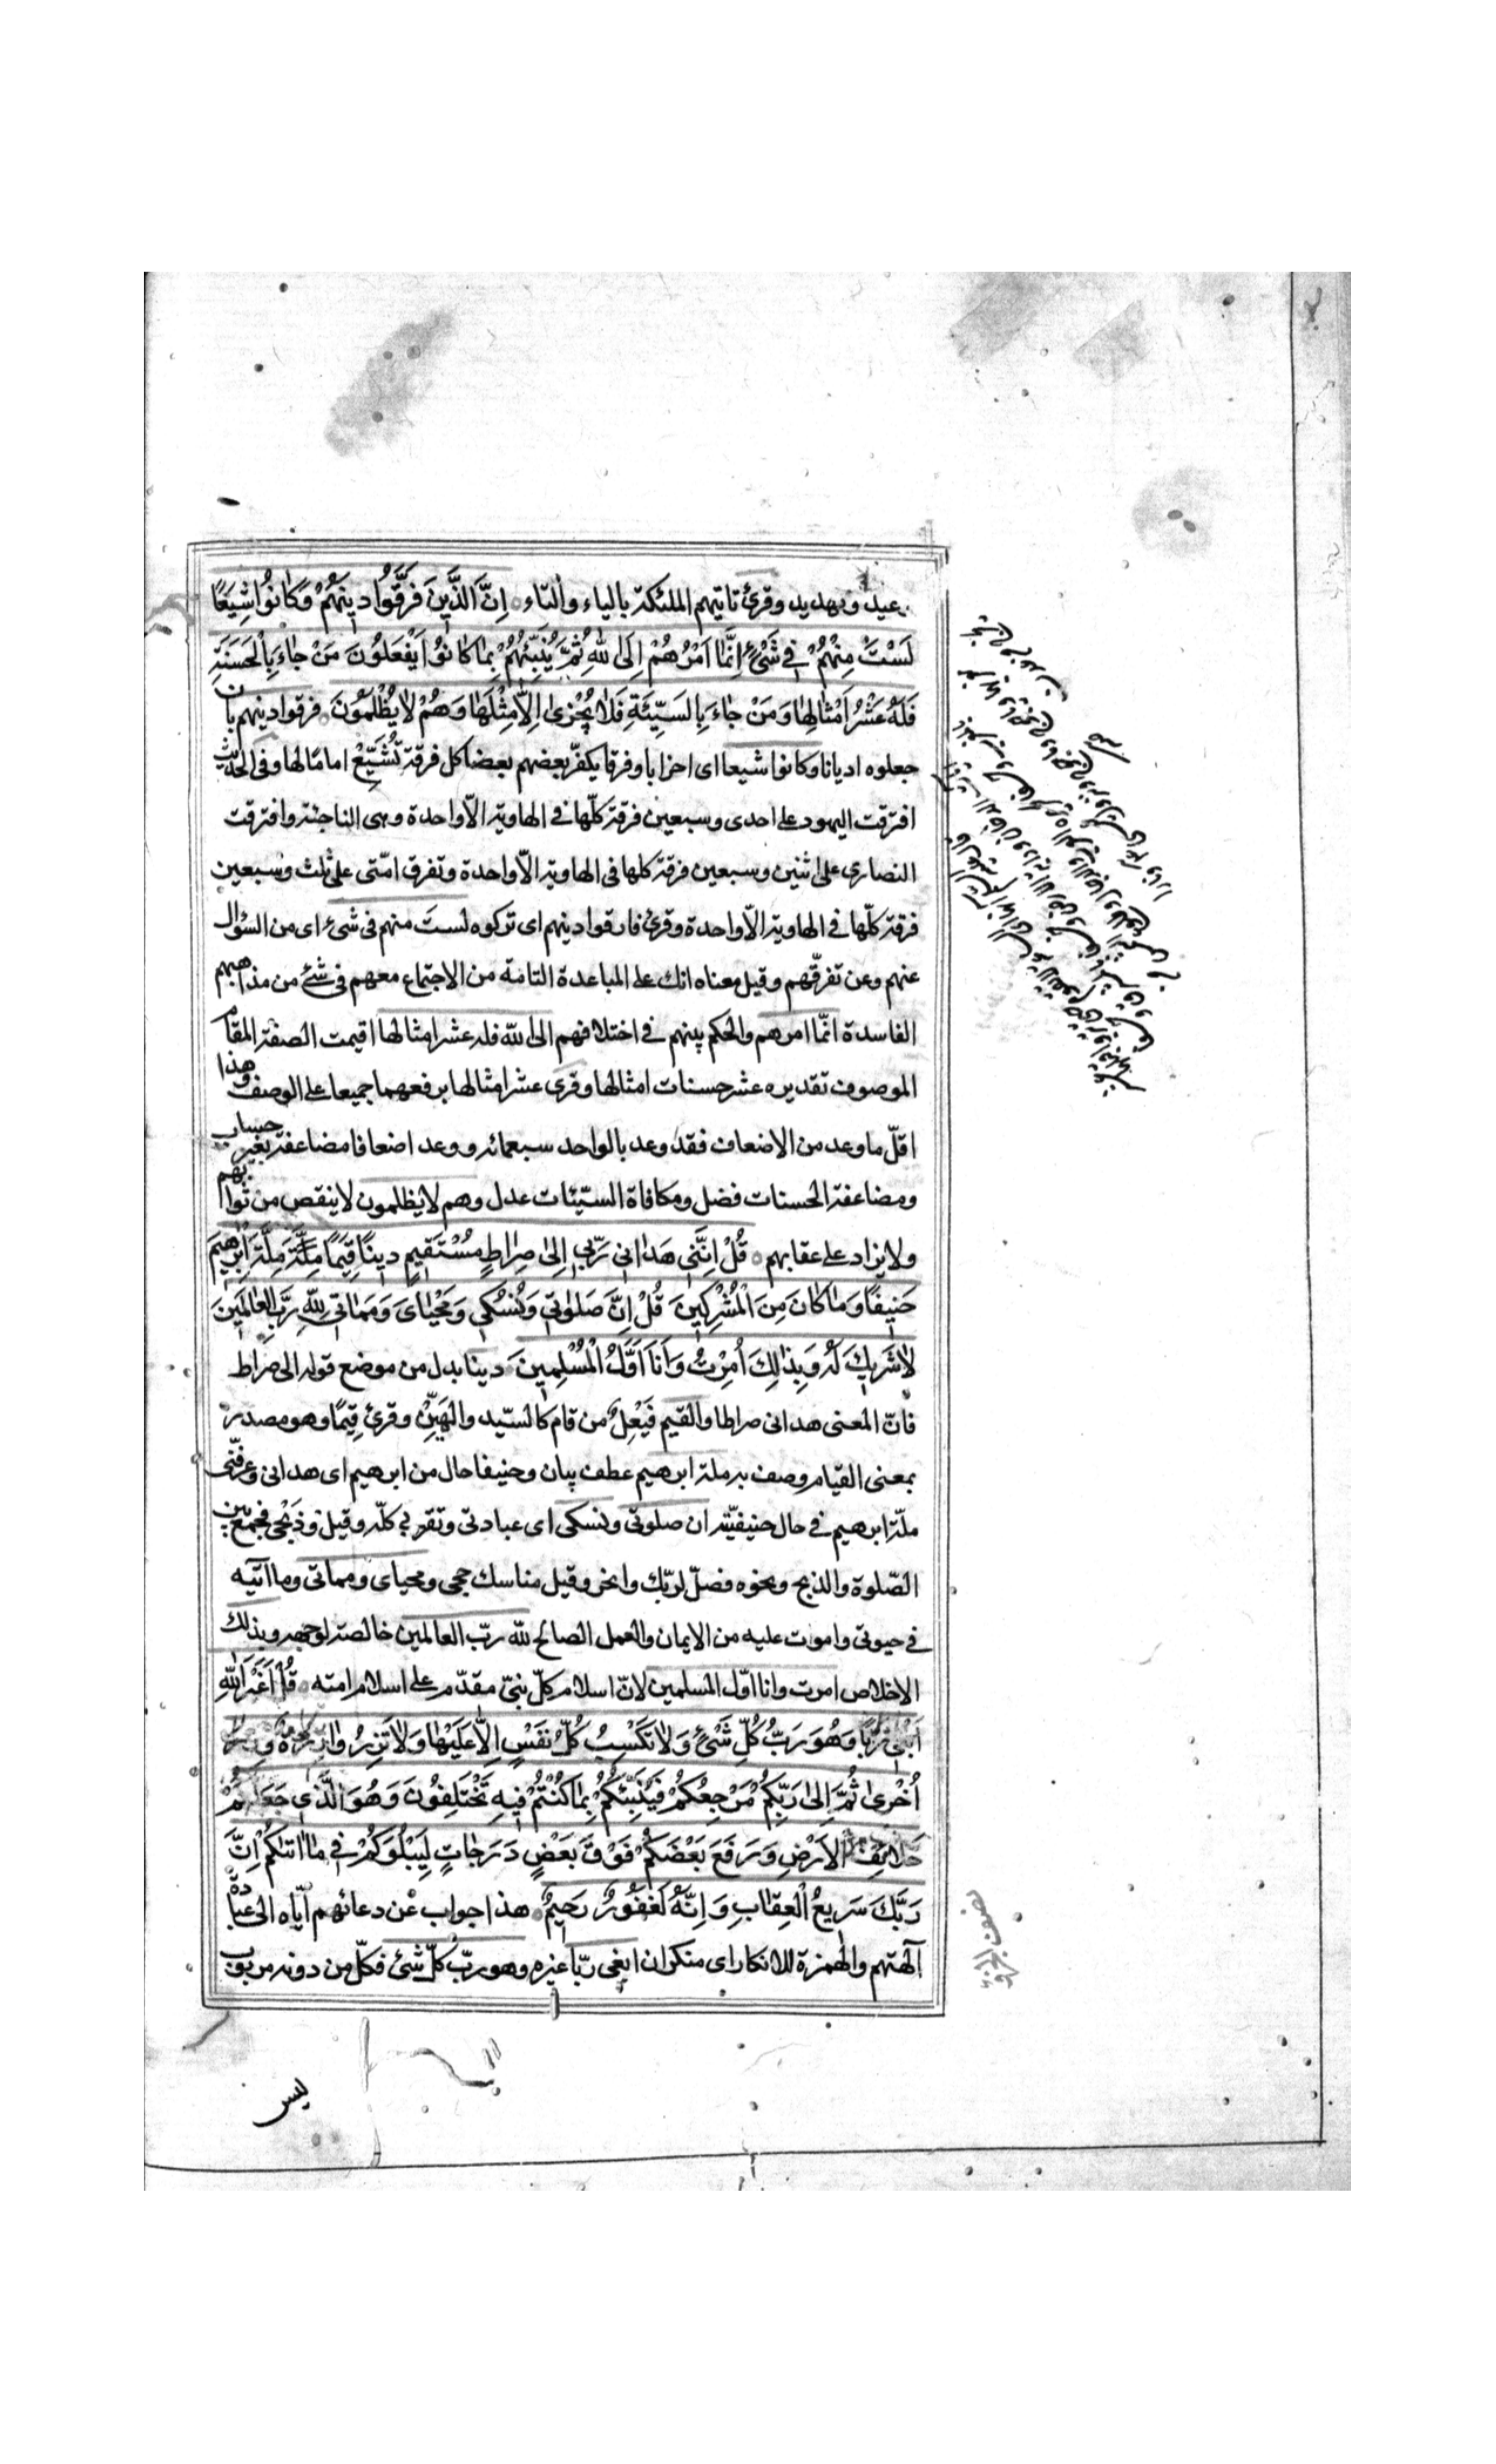 وعيد وتهديد وقرئ تاتيهم الملئكة بالياء والتاء اِنَّ الَّذِينَ فَرَّقُوا دِينَهُمْ وَكَانُوا شِيَعًا
لَسْتَ مِنْهُمْ فِي شَيْءٍ اِنَّمَا اَمْرُهُمْ اِلَى اللّٰهِ ثُمَّ يُنَبِّئُهُمْ بِمَا كَانُوا يَفْعَلُونَ مَنْ جَاءَ بِالْحَسَنَةِ
فَلَهُ عَشْرُ اَمْثَالِهَا وَمَنْ جَاءَ بِالسَّيِّئَةِ فَلَا يُجْزٰى اِلَّا مِثْلَهَا وَهُمْ لَا يُظْلَمُونَ فرقوا دينهم بان
جعلوه اديانا وكانوا شيعا اى احزابا وفرقا يكفّر بعضهم بعضا كل فرقة تُشَيِّعْ امامًا لها وفى الحديث
افترقت اليهود على احدى وسبعين فرقة كلّها فى الهاوية الّا واحدة وهى الناجية وافترقت
النصارى على اثنين وسبعين فرقة كلها فى الهاوية الّا واحدة وتفرق امّتى على ثلث وسبعين
فرقة كلّها فى الهاوية الّا واحدة وقرئ فارقوا دينهم اى تركوه لستَ منهم فى شئ اى من السؤال
عنهم وعن تفرّقهم وقيل معناه انك على المباعدة التامة من الاجتماع معهم فى شئ من مذاهبهم
الفاسدة انّما امرهم والحكم بينهم فى اختلافهم الى اللّه فله عشر امثالها اقيمت الصفة المقام
الموصوف تقديره عشر حسنات امثالها وقرئ عشر امثالها برفعهما جميعا على الوصف وهذا
اقلّ ما وعد من الاضعاف فقد وعد بالواحد سبعمائة ووعد اضعافا مضاعفة بغير حساب
ومضاعفة الحسنات فضل ومكافاة السيّئات عدل وهم لا يظلمون لا ينقص من ثوابهم
ولا يزاد على عقابهم قُلْ اِنَّنِي هَدَانِي رَبِّي اِلٰى صِرَاطٍ مُسْتَقِيمٍ دِينًا قِيَمًا مِلَّةَ مِلَّةَ اِبْرٰهِيمَ
حَنِيفًا وَمَا كَانَ مِنَ الْمُشْرِكِينَ قُلْ اِنَّ صَلٰوتِي وَنُسُكِي وَمَحْيَايَ وَمَمَاتِي لِلّٰهِ رَبِّ الْعَالَمِينَ
لَا شَرِيكَ لَهُ وَبِذٰلِكَ اُمِرْتُ وَاَنَا اَوَّلُ الْمُسْلِمِينَ دينا بدل من موضع قوله الى صراط
فانّ المعنى هدانى صراطا والقيم فَيْعِلٌ من قام كالسّيد والهَيِّنْ وقرئ قِيَمًا وهو مصدر
بمعنى القيام وصف به وملة ابرهيم عطف بيان وحنيفا حال من ابرهيم اى هدانى وعرفنى
ملّة ابرهيم فى حال حنيفيّته ان صلوتى ونسكى اى عبادتى وتقربى كلّه وقيل وذَبْحِى فجمع بين
الصّلوة والذبح ونحوه فصلّ لربّك وانحر وقيل مناسك حجى ومحياى ومماتى وما آتيه
فى حيوتى واموت عليه من الايمان والعمل الصالح للّه ربّ العالمين خالصة لوجهه وبذلك
الاخلاص امرت وانا اوّل المسلمين لانّ اسلام كلّ نبىّ مقدّم على اسلام امته قُلْ اَغَيْرَ اللّٰهِ
اَبْغِي رَبًّا وَهُوَ رَبُّ كُلِّ شَيْءٍ وَلَا تَكْسِبُ كُلُّ نَفْسٍ اِلَّا عَلَيْهَا وَلَا تَزِرُ وَازِرَةٌ وِزْرَ
اُخْرٰى ثُمَّ اِلٰى رَبِّكُمْ مَرْجِعُكُمْ فَيُنَبِّئُكُمْ بِمَا كُنْتُمْ فِيهِ تَخْتَلِفُونَ وَهُوَ الَّذِي جَعَلَكُمْ
خَلَائِفَ الْاَرْضِ وَرَفَعَ بَعْضَكُمْ فَوْقَ بَعْضٍ دَرَجَاتٍ لِيَبْلُوَكُمْ فِي مَا اٰتٰىكُمْ اِنَّ
رَبَّكَ سَرِيعُ الْعِقَابِ وَاِنَّهُ لَغَفُورٌ رَحِيمٌ هذا جواب عن دعائهم ايّاه الى عبادة
آلهتهم والهمزة للانكار اى منكر ان ابغى ربّا غيره وهو ربّ كلّ شئ فكلّ من دونه مربوب
نصف الجزو
ليس